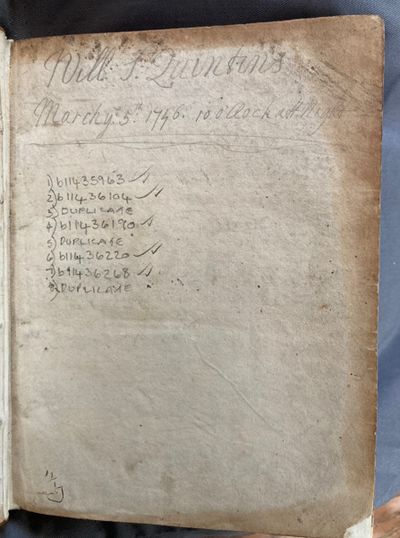 Will: St. Quintins
March ye. 5th. 1746. 10 o'Clock att Night
1) b11435963
2) b11436104
3) DUPLICATE
4) b11436190
5) DUPLICATE
6) b11436220
7) b11436268
8) DUPLICATE